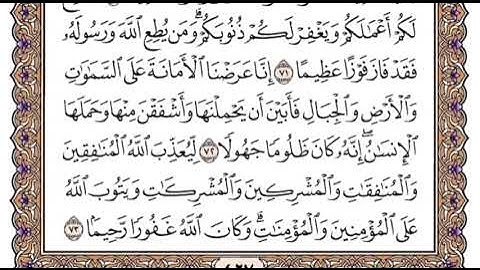 لَكُمْ أَعْمَٰلَكُمْ وَيَغْفِرْ لَكُمْ ذُنُوبَكُمْ ۗ وَمَن يُطِعِ ٱللَّهَ وَرَسُولَهُۥ
فَقَدْ فَازَ فَوْزًا عَظِيمًا ٧١ إِنَّا عَرَضْنَا ٱلْأَمَانَةَ عَلَى ٱلسَّمَٰوَٰتِ
وَٱلْأَرْضِ وَٱلْجِبَالِ فَأَبَيْنَ أَن يَحْمِلْنَهَا وَأَشْفَقْنَ مِنْهَا وَحَمَلَهَا
ٱلْإِنسَٰنُ ۖ إِنَّهُۥ كَانَ ظَلُومًا جَهُولًا ٧٢ لِّيُعَذِّبَ ٱللَّهُ ٱلْمُنَٰفِقِينَ
وَٱلْمُنَٰفِقَٰتِ وَٱلْمُشْرِكِينَ وَٱلْمُشْرِكَٰتِ وَيَتُوبَ ٱللَّهُ
عَلَى ٱلْمُؤْمِنِينَ وَٱلْمُؤْمِنَٰتِ ۗ وَكَانَ ٱللَّهُ غَفُورًا رَّحِيمًا ٧٣